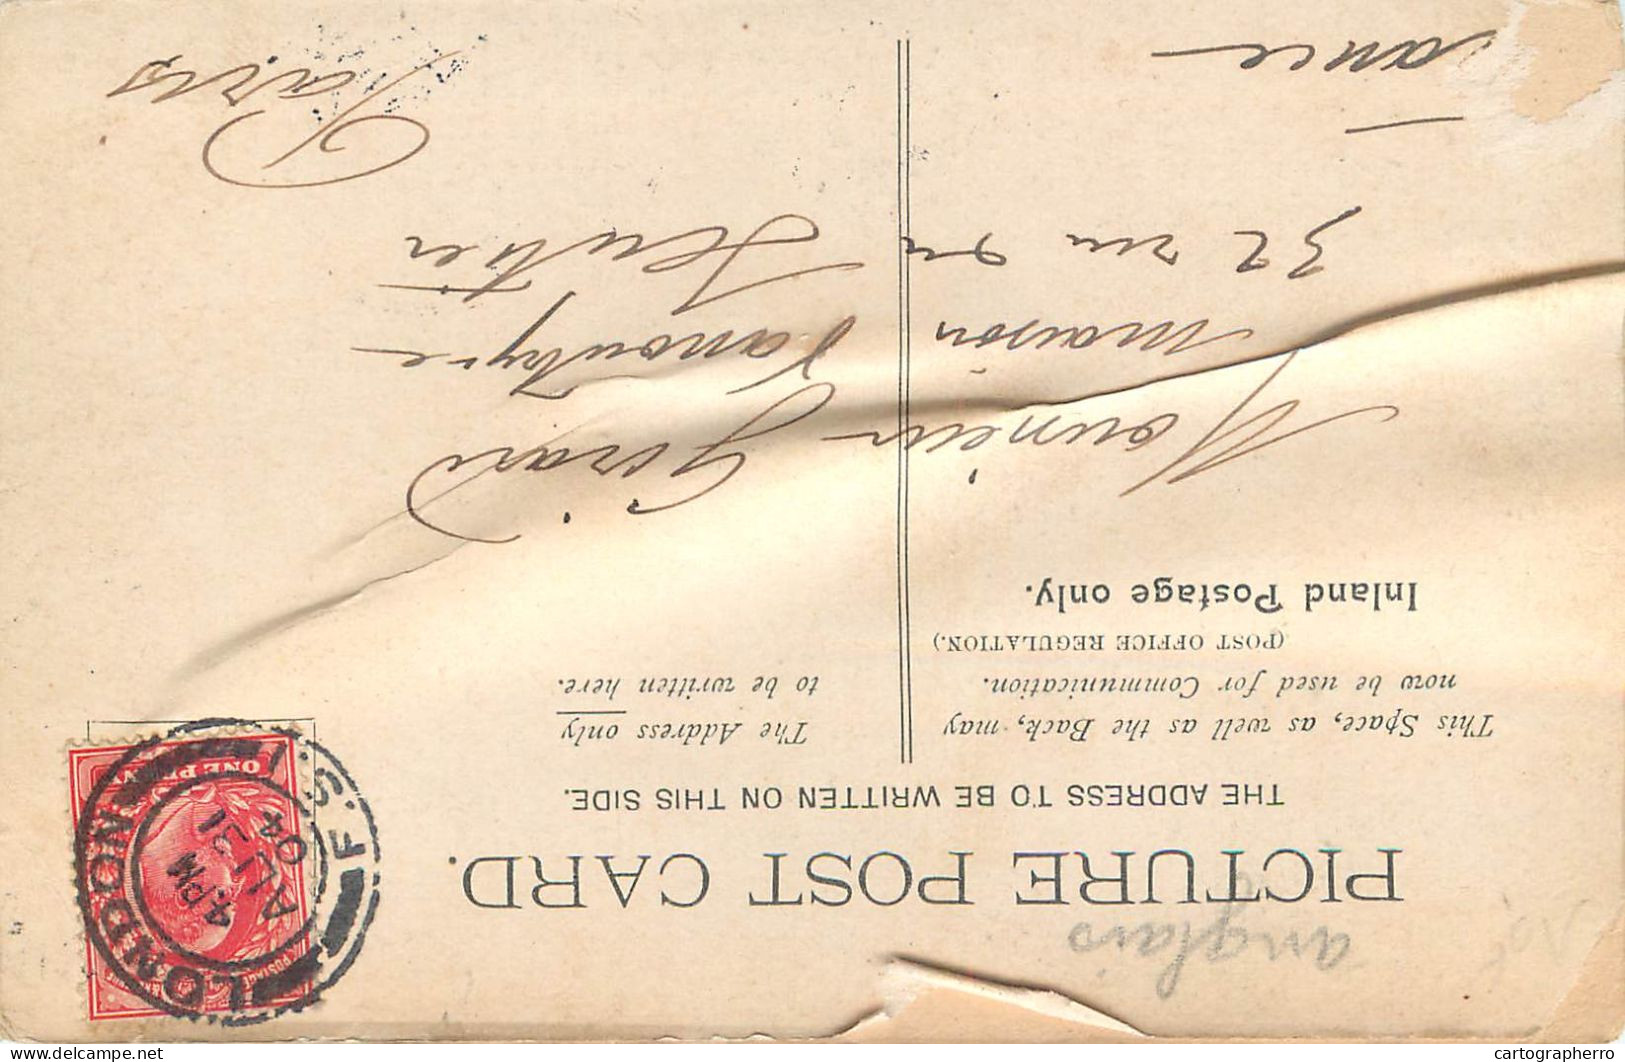 PICTURE POST CARD.
THE ADDRESS TO BE WRITTEN ON THIS SIDE.
This Space, as well as the Back, may
now be used for Communication.
(POST OFFICE REGULATION.)
Inland Postage only.
The Address only
to be written here.
Monsieur Girard
maison
32 rue du
Sentier
Paris
anglais
ONE PENNY
POSTAGE
LONDON F.S.
4.PM
31
04
delcampe.net
cartographerro